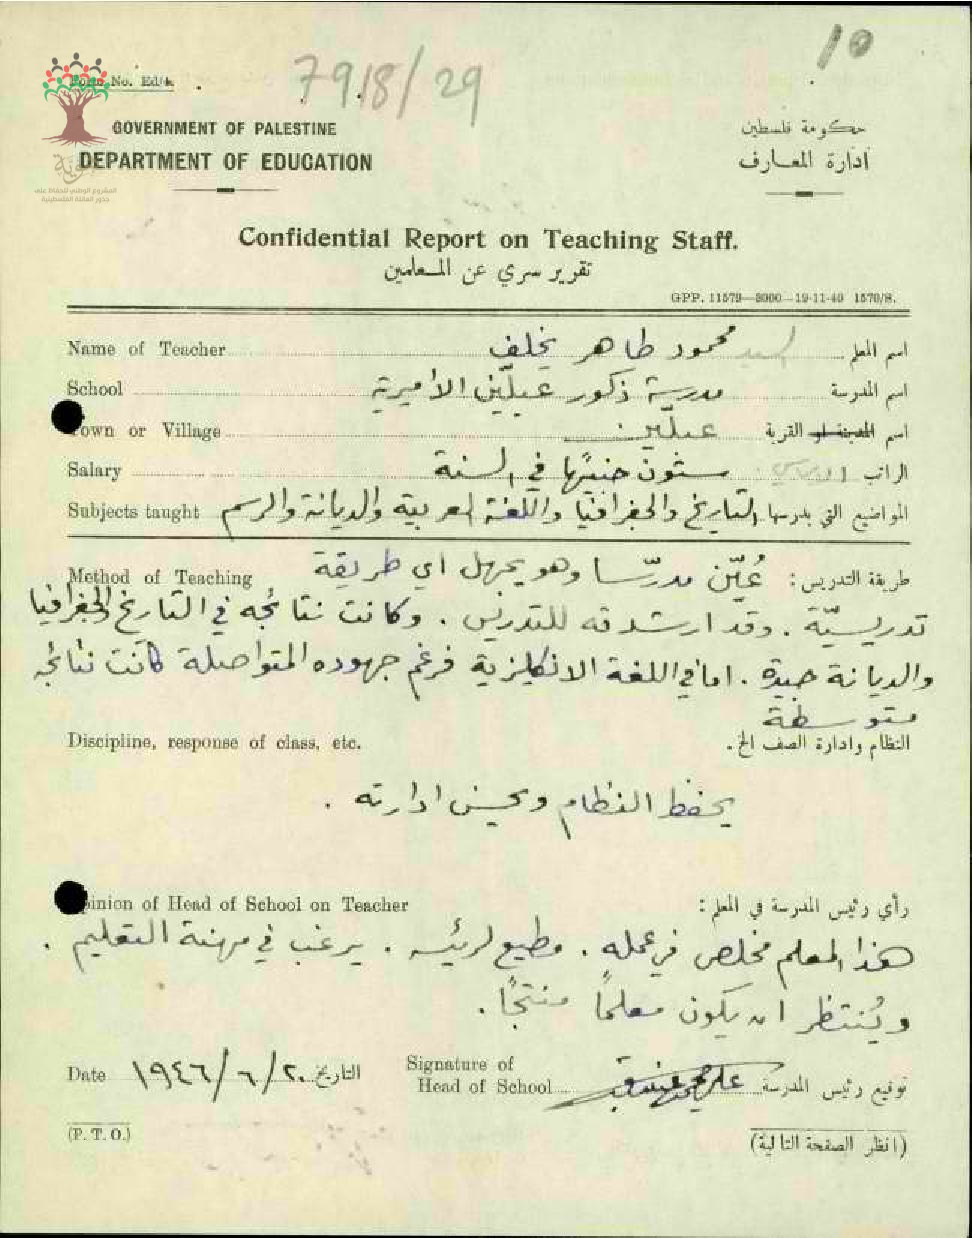 10
7918/29
Form No. Ed/4.
GOVERNMENT OF PALESTINE
حكومة فلسطين
DEPARTMENT OF EDUCATION
ادارة المعارف
المشروع الوطني للحفاظ على
جذور العائلة الفلسطينية
Confidential Report on Teaching Staff.
تقرير سري عن المعلمين
GPP. 11579—3000—19-11-40 1570/8.
Name of Teacher السيد محمود طاهر يخلف اسم المعلم
School مدرسة ذكور عبلّين الأميرية اسم المدرسة
Town or Village عبلّين اسم المدينة او القرية
Salary ستون جنيهًا في السنة الراتب الاساسي
Subjects taught التاريخ والجغرافيا واللغة العربية والديانة والرسم المواضيع التي يدرسها
Method of Teaching طريقة التدريس: عُيّن مدرّسا وهو يجهل اي طريقة
تدريسيّة. وقد ارشدته للتدريس. وكانت نتائجه في التاريخ والجغرافيا
والديانة جيدة. اما في اللغة الانكليزية فرغم جهوده المتواصلة كانت نتائجه
متوسطة
Discipline, response of class, etc. النظام وادارة الصف الخ.
يحفظ النظام ويحسن ادارته.
pinion of Head of School on Teacher رأي رئيس المدرسة في المعلم:
هذا المعلم مخلص في عمله. مطيع لرئيسه. يرغب في مهنة التعليم.
ويُنتظر ان يكون معلمًا منتجًا.
Date ٢٠/٦/١٩٤٦ التاريخ
Signature of
Head of School توقيع رئيس المدرسة
(P. T. O.) (انظر الصفحة التالية)